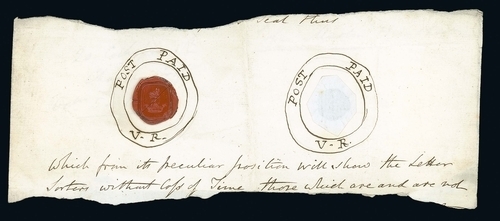 seal thus
POST PAID POST PAID
V-R. V-R.
which from its peculiar position will show the Letter
Sorters without loss of Time those which are and are not